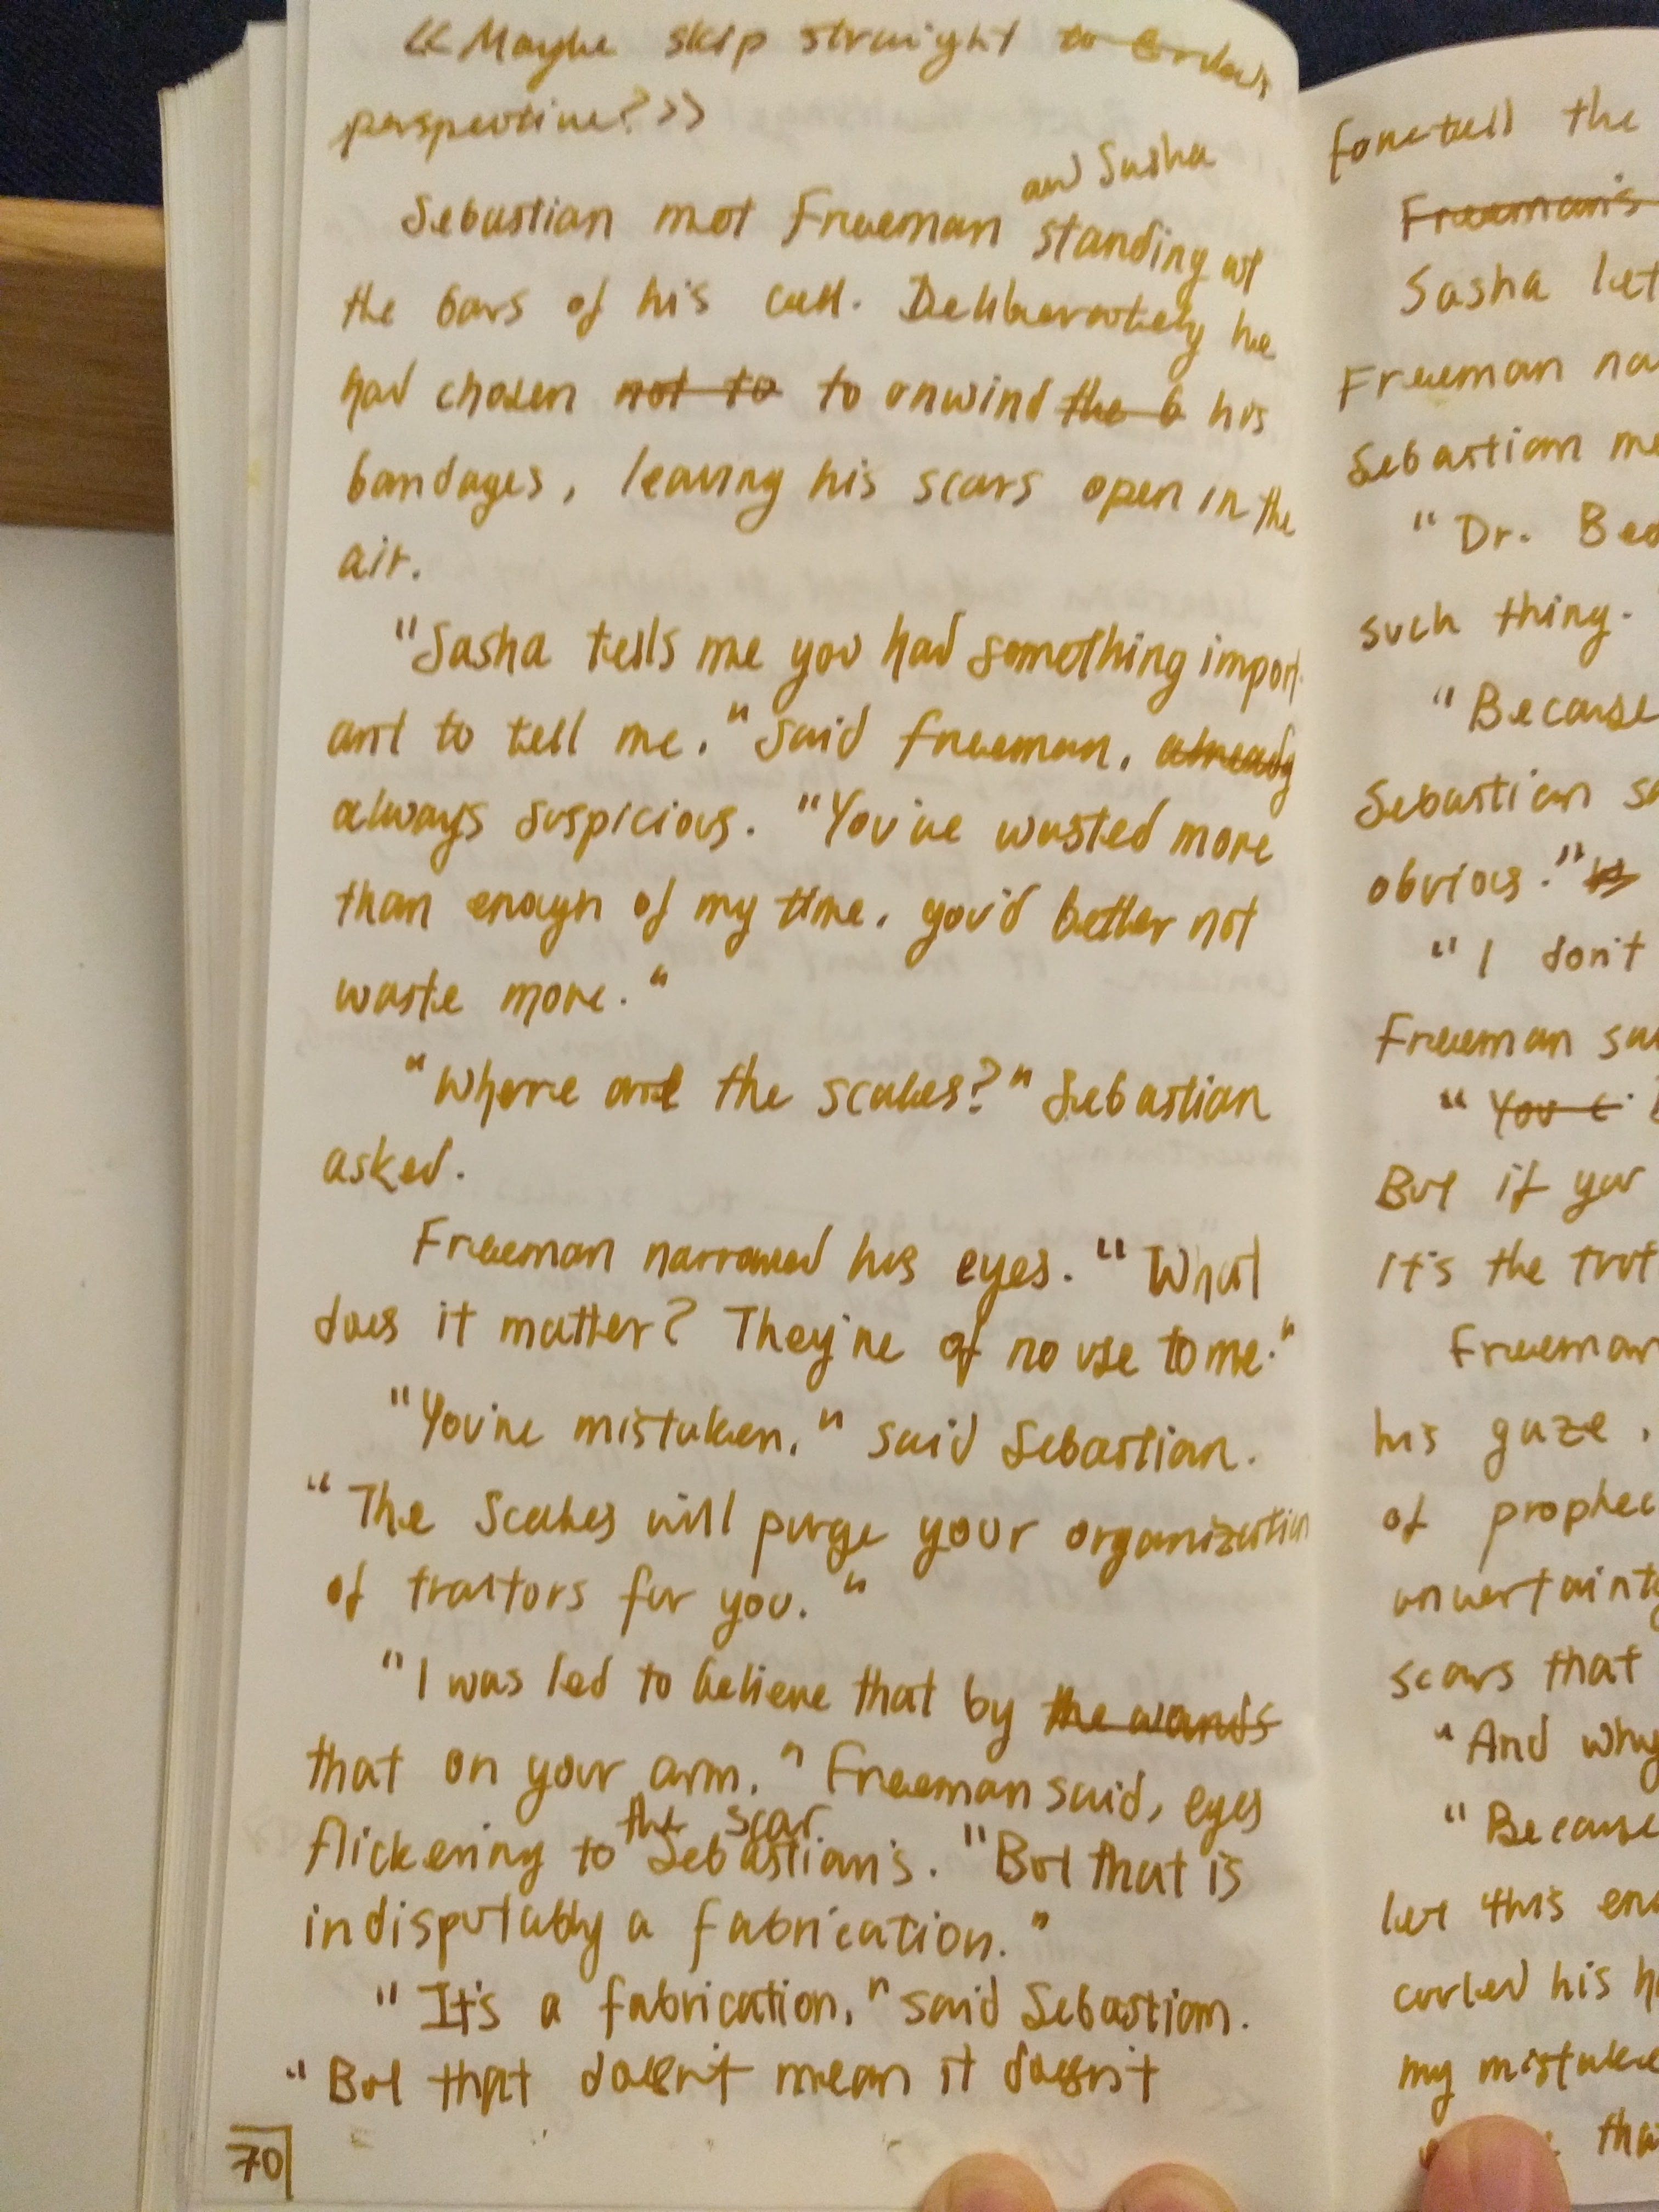 <<Maybe skip straight to
perspective?>>
and Sasha
Sebastian met Freeman standing at
the bars of his cell. Deliberately he
had chosen not to to unwind the b his
bandages, leaving his scars open in the
air.
"Sasha tells me you had something import-
ant to tell me." Said Freeman, already
always suspicious. "You've wasted more
than enough of my time, you'd better not
waste more."
"Where are the scales?" Sebastian
asked.
Freeman narrowed his eyes. "What
does it matter? They're of no use to me."
"You're mistaken," said Sebastian.
"The Scales will purge your organization
of traitors for you."
"I was led to believe that by the words
that on your arm." Freeman said, eyes
the scar
flickering to Sebastian's. "But that is
indisputably a fabrication."
"It's a fabrication," said Sebastian.
"But that doesn't mean it doesn't
70
foretell the
Freeman's
Sasha let
Freeman na
Sebastian me
"Dr. Bed
such thing.
"Because
Sebastian sa
obvious."
"I don't
Freeman sai
"You c
But if you
it's the trut
Freeman
his gaze,
of prophec
uncertainty
scars that
"And why
"Because
let this en
curled his h
my mistake
tha